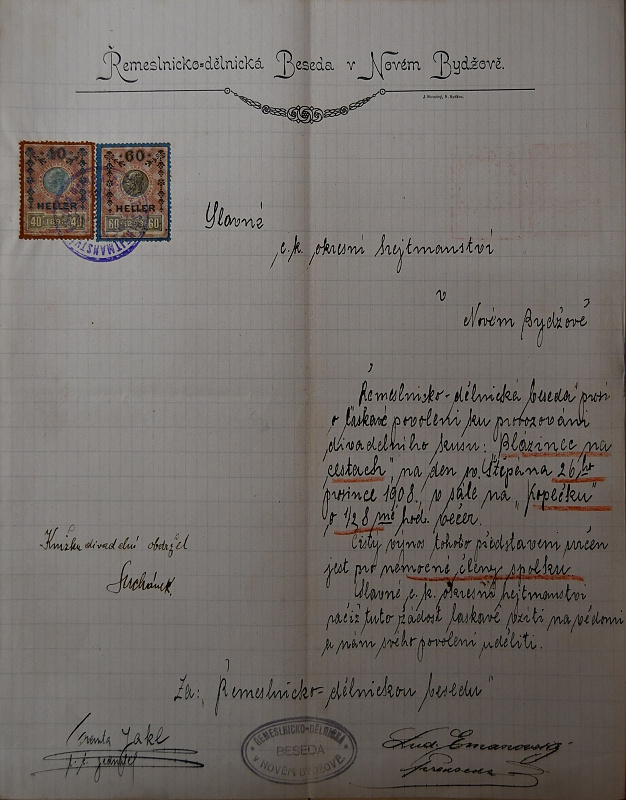 Řemeslnicko-dělnická Beseda v Novém Bydžově.
40 60
HELLER HELLER
40 1898 40 60 1898 60
Slavné
c.k. okresní hejtmanství
v
Novém Bydžově
„Řemeslnicko-dělnická beseda" prosí
o laskavé povolení ku provozování
divadelního kusu: „Blázinec na
cestách", na den sv. Štěpána 26ho
prosince 1908. v sále na „Kopečku"
o ½8 mé hod. večer.
Čistý výnos tohoto představení určen
jest pro nemocné členy spolku.
Slavné c. k. okresní hejtmanství
račiž tuto žádost laskavě vzíti na vědomí
a nám svého povolení uděliti.
Knížku divadelní obdržel
Suchánek
Za: „Řemeslnicko-dělnickou besedu"
Jakl
ŘEMESLNICKO-DĚLNICKÁ
BESEDA
V NOVÉM BYDŽOVĚ
Lud. Emanovský